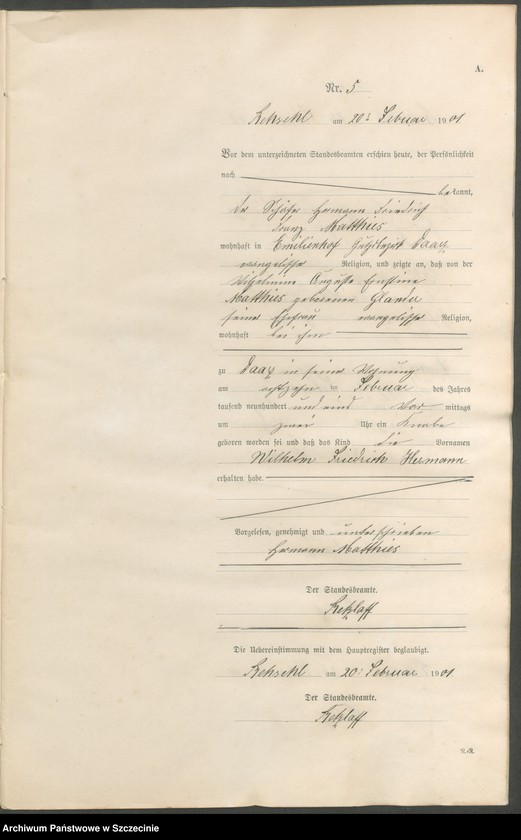 A.
Nr. 5
am 20ten Februar 1901
Vor dem unterzeichneten Standesbeamten erschien heute, der Persönlichkeit
nach
bekannt,
der Schäfer Hermann Friedrich
Franz Matthies
wohnhaft in Emilienhof Gutsbezirk Daarz
evangelischer Religion, und zeigte an, daß von der
Wilhelmine Auguste Ernstine
Matthies geborenen
seiner Ehefrau evangelischer Religion,
wohnhaft bei ihm
zu Daarz in seiner Wohnung
am achtzehn ten Februar des Jahres
tausend neunhundert und eins Vor mittags
um zwei Uhr ein Knabe
geboren worden sei und daß das Kind die Vornamen
Wilhelm Friedrich Hermann
erhalten habe.
Vorgelesen, genehmigt und unterschrieben
Hermann Matthies
Der Standesbeamte.
Retzlaff
Die Uebereinstimmung mit dem Hauptregister beglaubigt.
am 20ten Februar 1901
Der Standesbeamte.
Retzlaff
Archiwum Państwowe w Szczecinie